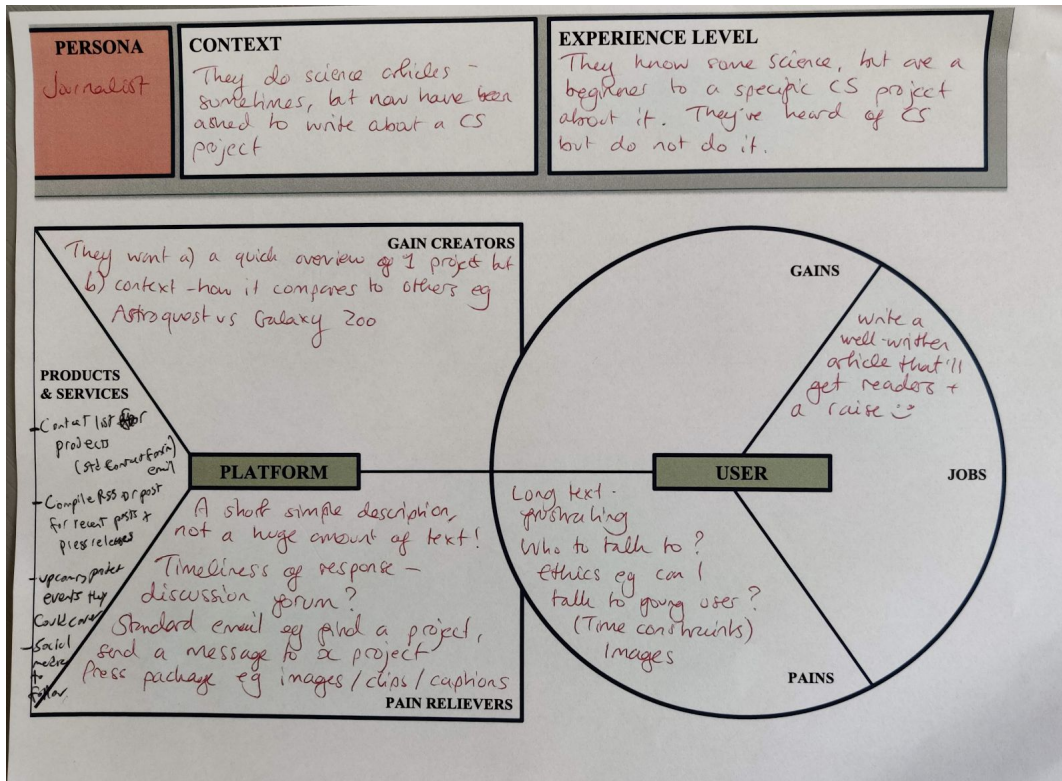 PERSONA
Journalist
CONTEXT
They do science articles -
sometimes, but now have been
asked to write about a CS
project
EXPERIENCE LEVEL
They know some science, but are a
beginner to a specific CS project
about it. They've heard of CS
but do not do it.
GAIN CREATORS
They want a) a quick overview of 1 project but
b) context - how it compares to others eg
Astroquest vs Galaxy Zoo
PRODUCTS
& SERVICES
- Contact list for
projects
(std contact form)
email
- Compile RSS or post
for recent posts +
press releases
- upcoming project
events they
could cover
- Social
media
to
follow
PLATFORM
A short simple description,
not a huge amount of text!
Timeliness of response -
discussion forum?
Standard email eg find a project,
send a message to a project
Press package eg images / clips / captions
PAIN RELIEVERS
GAINS
write a
well-written
article that'll
get readers +
a raise
JOBS
USER
Long text -
frustrating
Who to talk to?
ethics eg can I
talk to young user?
(Time constraints)
Images
PAINS